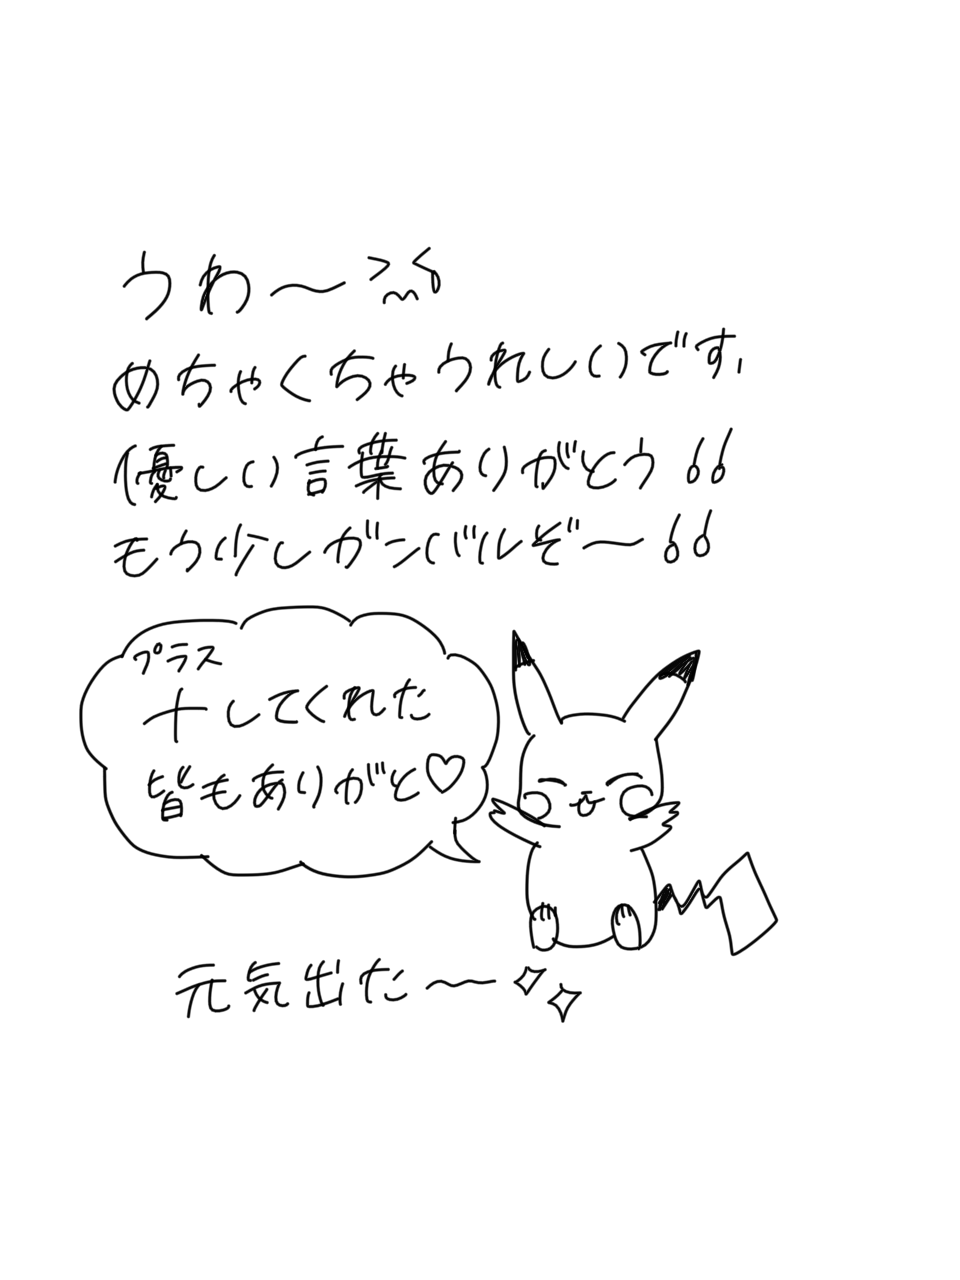 うわ〜
めちゃくちゃうれしいです、
優しい言葉ありがとう!!
もう少しガンバルぞ〜!!
プラス
+してくれた
皆もありがと♡
元気出た〜